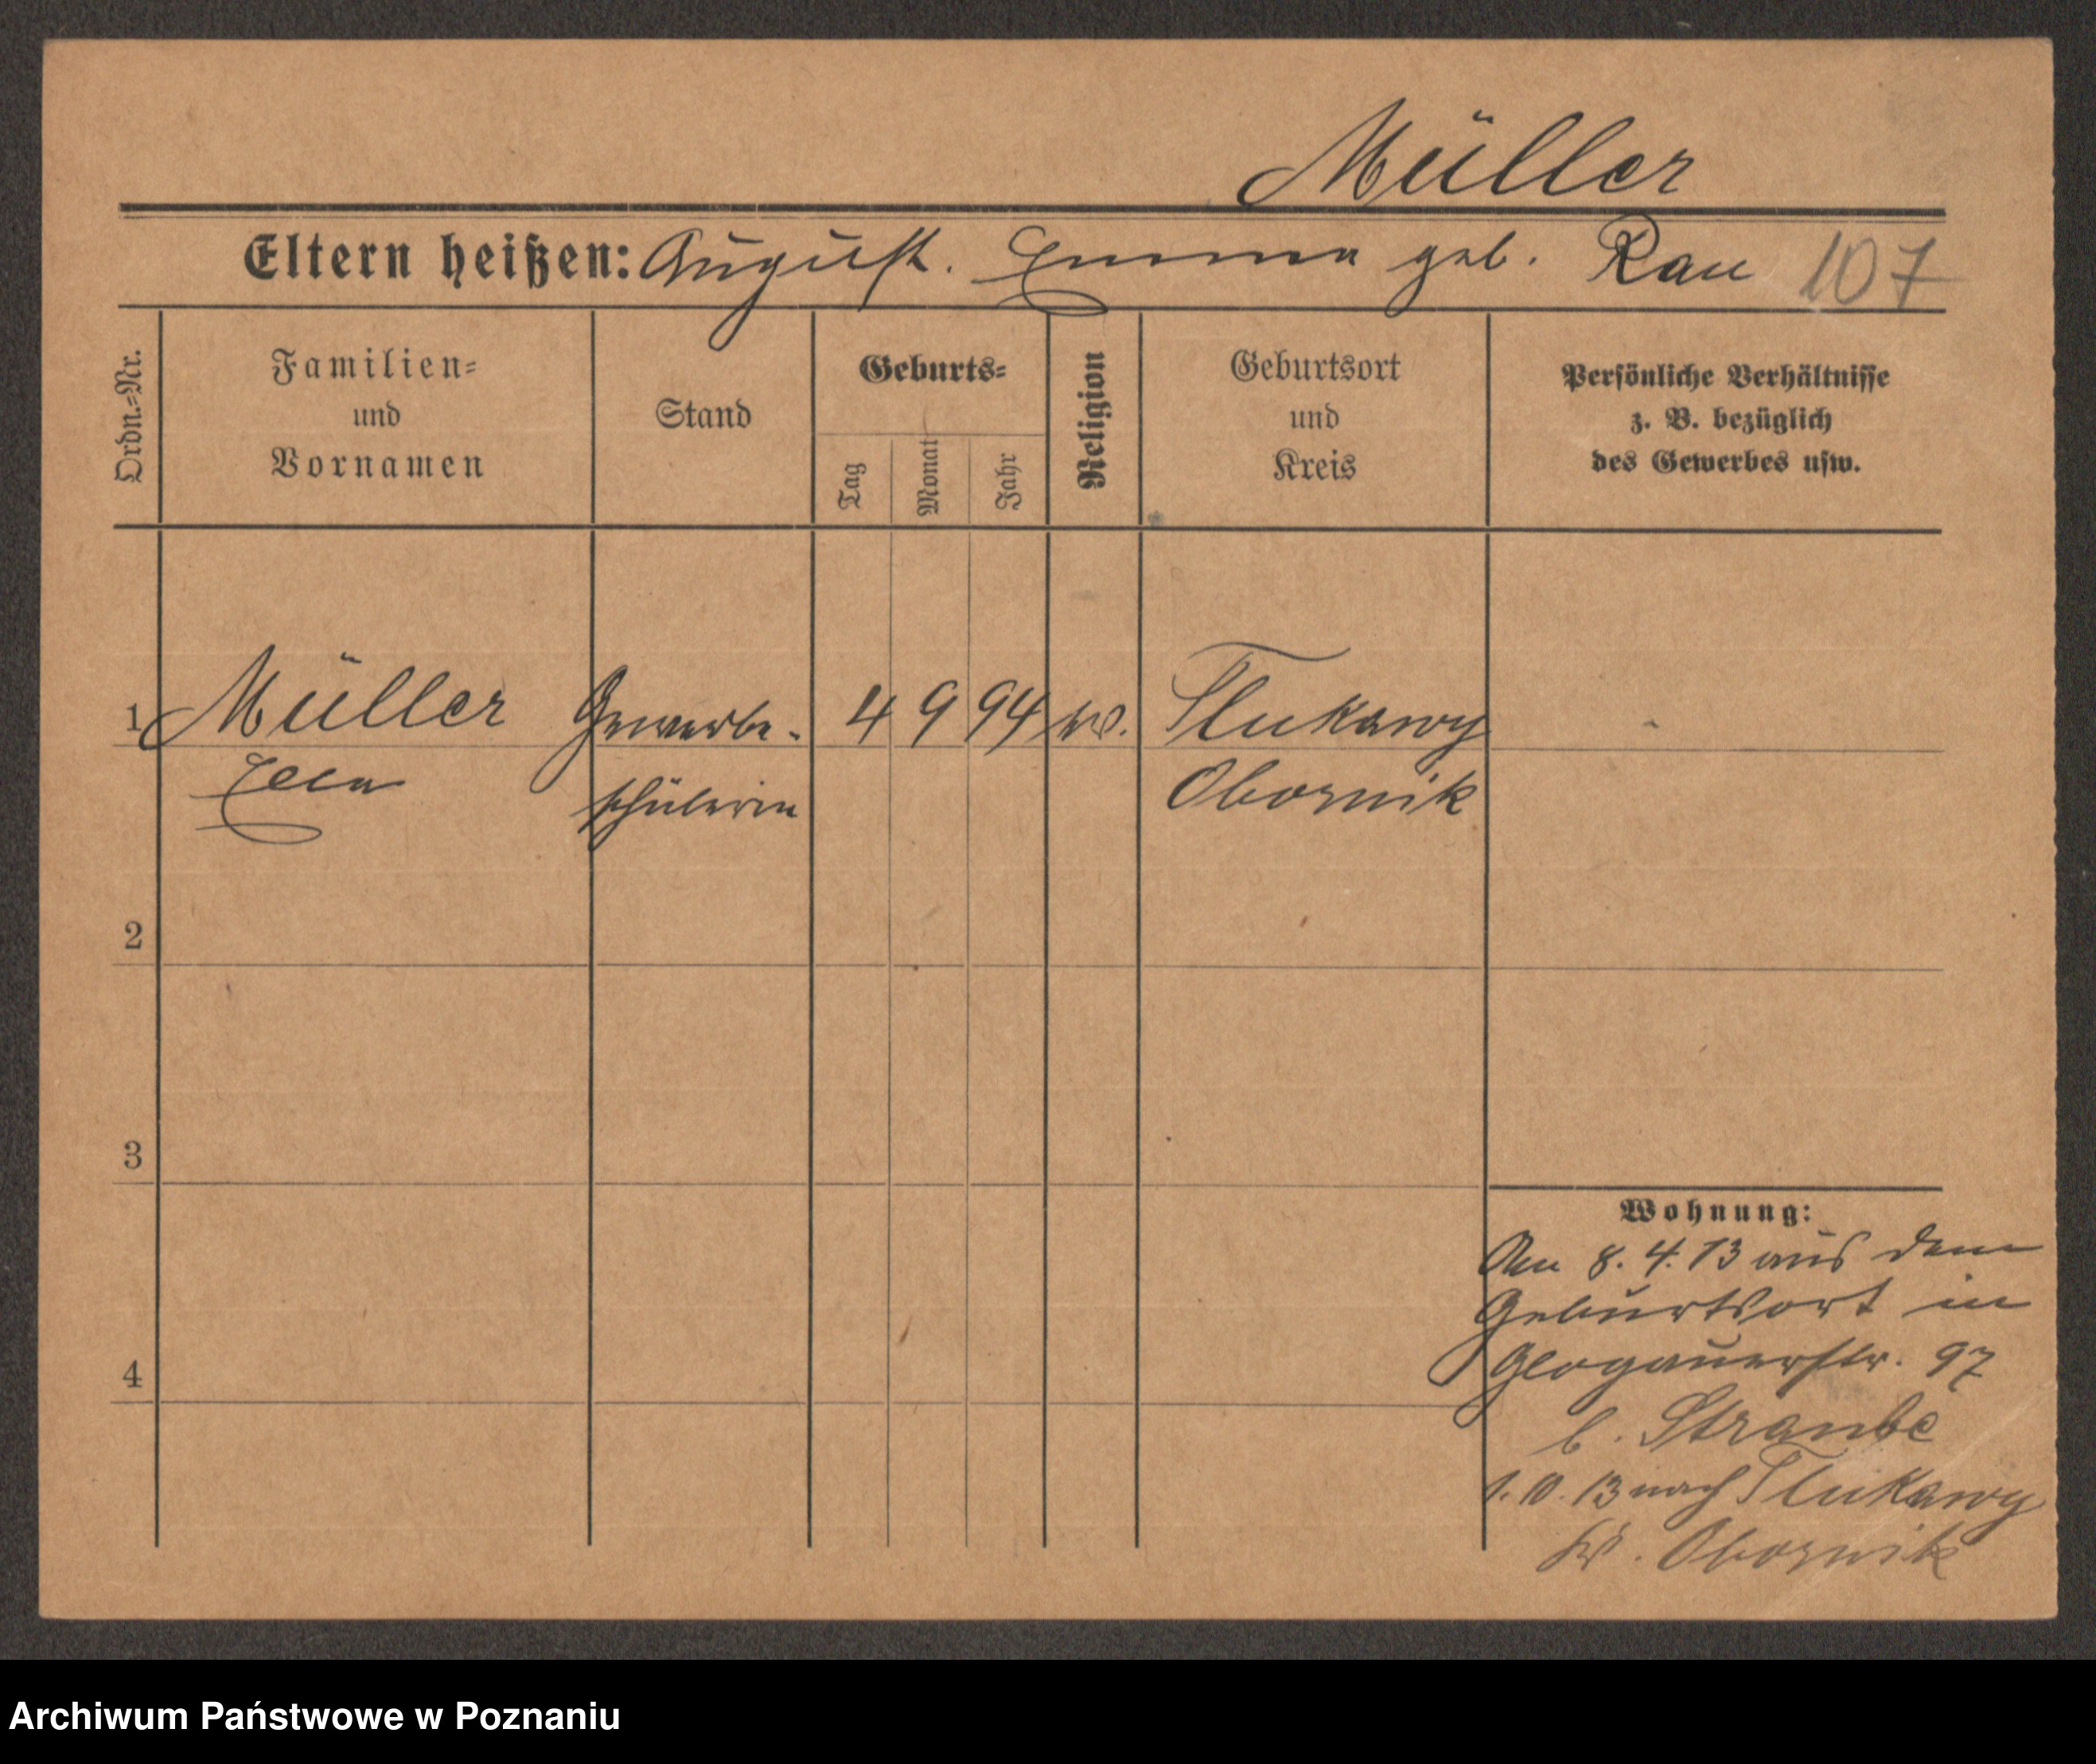 Müller
Eltern heißen: August. Emma geb. Rau 107
Ordn.=Nr.
Familien=
und
Vornamen
Stand
Geburts=
Tag
Monat
Jahr
Religion
Geburtsort
und
Kreis
Persönliche Verhältnisse
z. B. bezüglich
des Gewerbes usw.
1 Müller Gewerbe- 4 9 94 Tlukawy
Ella schülerin Obornik
2
3
4
Wohnung:
Am 8. 4. 13 aus dem
Geburtsort in
Glogauerstr. 97
b. Straube
1. 10. 13 nach Tlukawy
Kr. Obornik
Archiwum Państwowe w Poznaniu